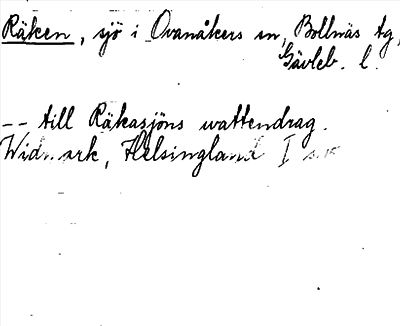 Räken, sjö i Ovanåkers sn, Bollnäs tg,
Gävleb. l.
-- till Räkasjöns wattendrag.
Widmark, Helsingland I